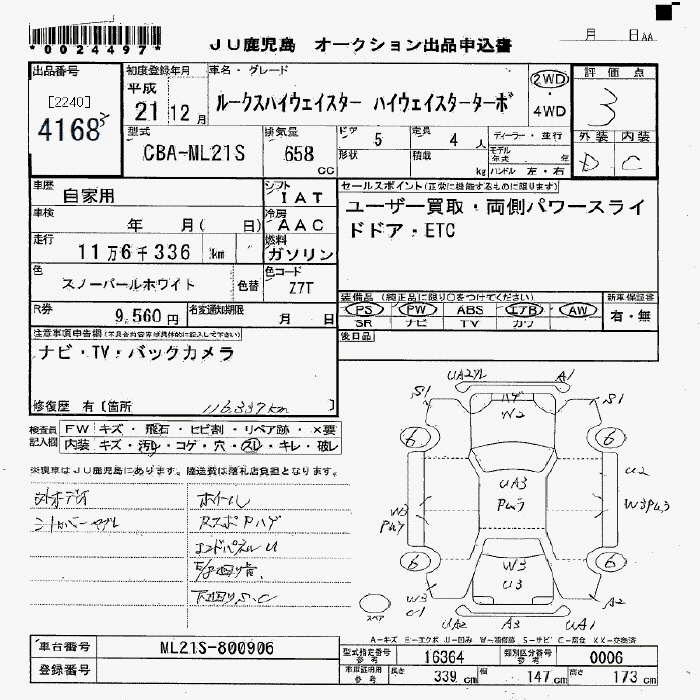 *0024497*
JU鹿児島 オークション出品申込書
月 日AA
出品番号
[2240]
4168
初度登録年月
平成
21 12月
車名・グレード
ルークスハイウェイスター ハイウェイスターターボ
2WD
・
4WD
評価点
3
外装 内装
D C
型式
CBA-ML21S
排気量
658
cc
ドア 5
定員 4人
形状
積載 kg
ディーラー・並行
モデル年式 年
ハンドル 左・右
車歴
自家用
シフト
IAT
車検
年 月( 日)
冷房
AAC
走行
11万6千336 km
燃料
ガソリン
色
スノーパールホワイト
色替
色コード
Z7T
R券
9,560円
名変通知期限
月 日
セールスポイント(正常に機能するものに限ります)
ユーザー買取・両側パワースライ
ドドア・ETC
装備品(純正品に限り○をつけてください)
PS PW ABS エアB AW
SR ナビ TV カワ
新車保証書
有・無
後日品
注意事項申告欄
ナビ・TV・バックカメラ
修復歴 有〔箇所 〕
116,337km
検査員記入欄
FW キズ・飛石・ヒビ割・リペア跡・X要
内装 キズ・汚レ・コゲ・穴・スレ・キレ・破レ
※現車はJU鹿児島にあります。陸送費は落札店負担となります。
ホイール
エンドパネルU
下回りS.C
UA2 A1
S1 S1
ハゲ
W2
6 6
UA3
U2
W3
W3
U3
6 6
W3
C1
A2
UA2 A3 UA1
スペア
A-キズ E-エクボ U-凹み W-補修跡 S-サビ C-腐食 XX-交換済
車台番号 ML21S-800906
登録番号
型式指定番号 参考 16364
類別区分番号 参考 0006
車両証明用 参考 長さ 339cm 幅 147cm 高さ 173cm